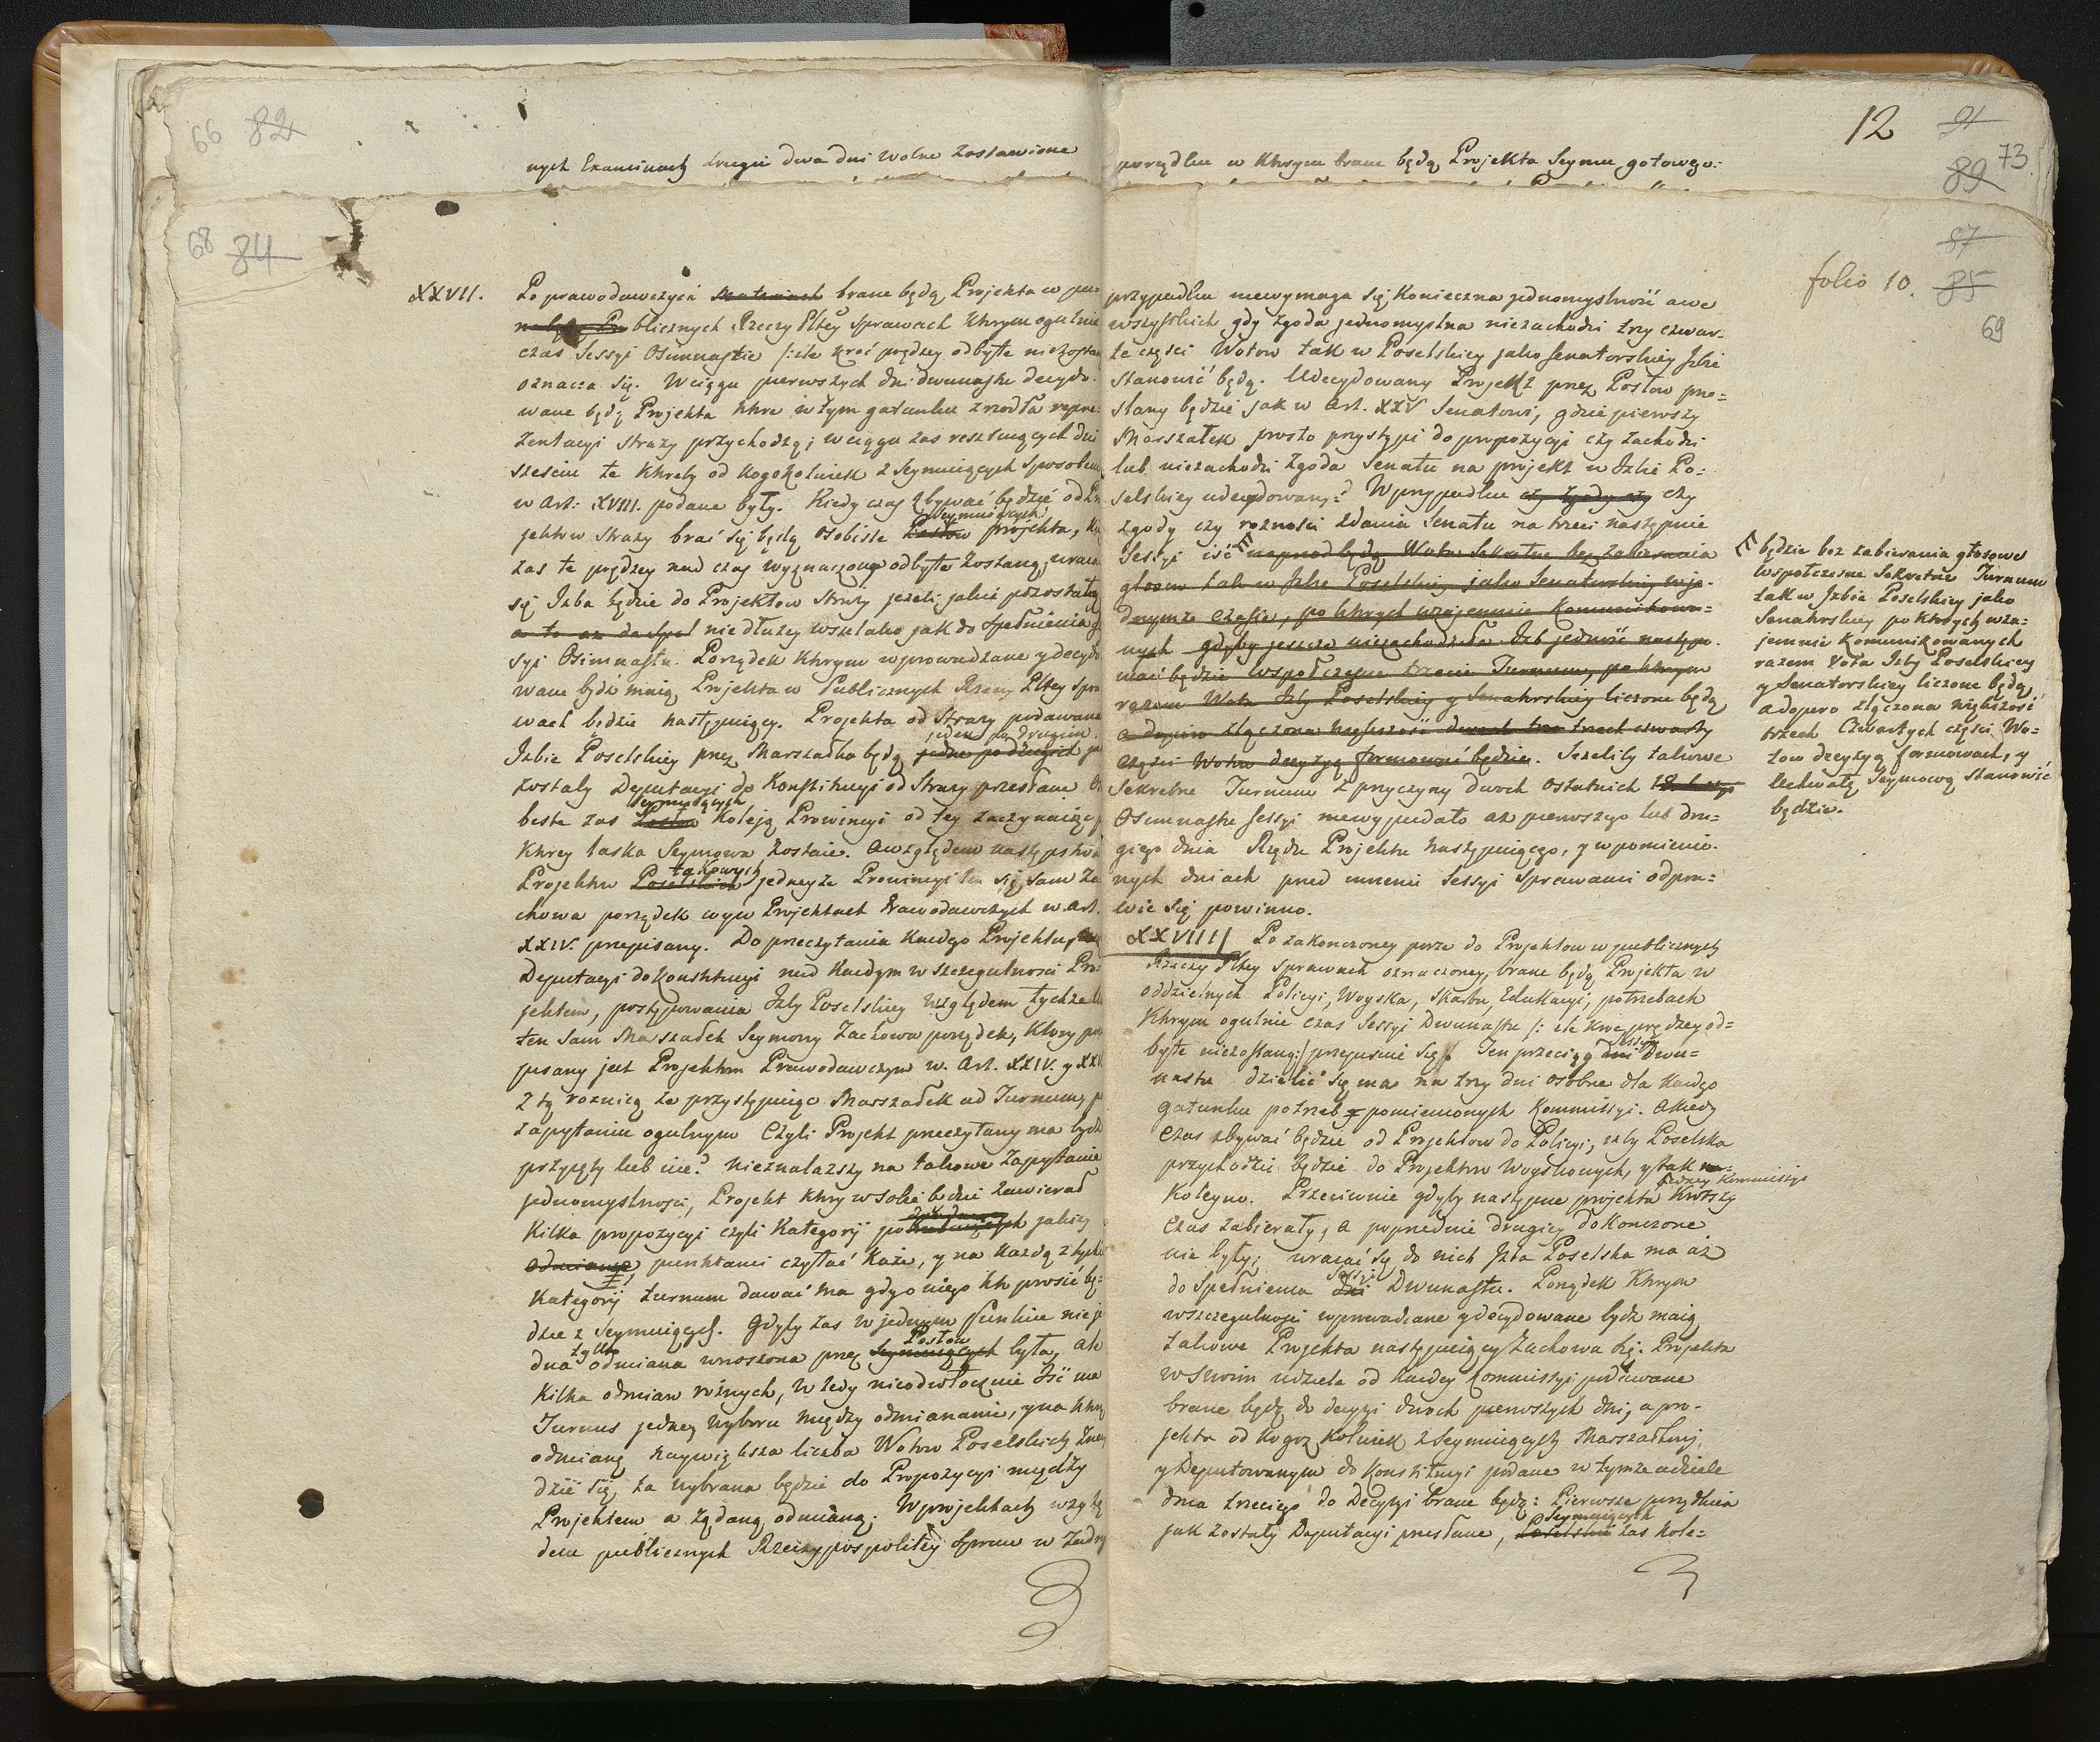 66 82
nych Examinach drugie dwa dni wolne zostawione
68 84
XXVII.
Po prawodawczych materiach brane będą Projekta w pu
blicznych Rzeczy Pltey Sprawach którym ogulnie
czas Sessyi Osiumnastie /: ile kroć prędzey odbyte niezostan
oznacza się. W ciągu pierwszych dni dwunastu decydo-
wane będą Projekta które w tym gatunku z rzodła repre-
zentacyi straży przychodzą; w ciągu zas resztuiących dni
sześciu te któreby od kogokolwiek z Seymuiących Sposobem
w Art: XVIII. podane były. Kiedy czas zbywać będzie od Pro
jektow straży brać się będą osobiste Posłow Seymuiących projekta, kie
zas te prędzey nad czas wyznaczony odbyte zostaną, wraca
się Izba będzie do Projektow straży jeżeli jakie pozostały
a to az do Speł niedłużey wszelako jak do spełnienia
syi Osimnastu. Porządek którym wprowadzane y decydo
wane bydź maią Projekta w Publicznych Rzeczy Pltey Spra
wach będzie następuiący. Projekta od Straży podawane
Izbie Poselskiey przez Marszałka będą jedne po drugich jeden po drugim
zostały Deputacyi do Konstitucyi od Straży przesłane
biste zas Posłow Seymuiących koleją Prowincyi od tey zaczynaiąc
którey laska Seymowa zostaie. Względem następstwa
Projektow Poselskich takowych jedneyże Prowincyi ten się sam za
chowa porządek co y w Projektach Prawodawczych w Art.
XXIV. przepisany. Do przeczytania każdego Projektu,
Deputacyi do Konstitucyi nad każdym w szczegulności Pro-
jektem, postępowania Izby Poselskiey względem tychże
ten sam Marszałek Seymowy zachowa porządek, który prze
pisany jest Projektom Prawodawczym w. Art. XXIV. y XXV
z tą roznicą że przystępuiąc Marszałek ad Turnum, p
zapytaniu ogulnym czyli Projekt przeczytany ma bydź
przyięty lub nie? nieznalazszy na takowe zapytanie
jednomyslności, Projekt który w sobie będzie zawierał
kilka propozycyi czyli kategoryi
odmiany, punktami czytać każe, y na każdą z tych
kategoryi turnum dawać ma gdy o niego kto prosić bę-
dzie z Seymuiących. Gdyby zas w jednym punkcie nie je
dna tylko odmiana wnoszona przez Seymuiących Posłow była, ale
kilka odmian rożnych, w tedy nieodwłocznie iść ma
Turnus jeden wyboru między odmianami, y na którą
odmianę naywiększa liczba Wotow Poselskich znay
dzie się, ta wybrana będzie do Propozycyi między
Projektem a żądaną odmianą. W projektach wzglę
dem publicznych Rzeczypospolitey spraw w żadny
12 91
89 73
porządku w którym brane będą Projekta Seymu gotowego:
87
folio 10. 85
69
przypadku niewymaga się konieczna jednomyslność a we
wszystkich gdy zgoda jednomyslna niezachodzi trzy czwar-
te części Wotow tak w Poselskiey jako Senatorskiey Izbie
stanowić będą. Udecydowany Projekt przez Posłow prze-
słany będzie jak w Art. XXV Senatowi, gdzie pierwszy
Marszałek prosto przystąpi do propozycyi czy zachodzi
lub niezachodzi zgoda Senatu na projekt w Izbie Po-
selskiey udecydowany? W przypadku czy zgody czy czy
zgody czy rożności zdania Senatu na trzeci następnie
Sessyi iść naprzod będą Wota Sekretne bez zabierania
głosow tak w Izbie Poselskiey jako Senatorskiey w je-
dnymże czasie, po których wzaiemnie kommunikowa-
nych gdyby jeszcze niezachodziła Izb jedność następo-
wać będzie wspołczesne trzecie Turnum, po którym
razem Wota Izby Poselskiey y Senatorskiey liczone będą
a dopiero złączona większość dwoch trzech czwarty
części Wotow decyzyą formować będzie. Jeżeliby takowe
sekretne Turnum z przyczyny dwoch ostatnich
Osiumnastu sessyi niewypadało aż pierwszego lub dru-
giego dnia Rzędu Projektu następuiącego, y w pomienio-
nych dniach przed innemi Sessyi Sprawami odpra-
wić się powinno.
będzie bez zabierania głosow
wspołczesne Sekretne Turnum
tak w Izbie Poselskiey jako
Senatorskiey po których wza-
jemnie kommunikowanych
razem Vota Izby Poselskiey
y Senatorskiey liczone będą
a dopiero złączona większość
trzech czwartych części Wo-
tow decyzyą formować, y
Uchwałę Seymową stanowić
będzie.
XXVIII
Po zakonczoney porze do Projektow w publicznych
Rzeczy Pltey sprawach oznaczoney, brane będą Projekta w
oddzielnych Policyi, Woyska, Skarbu, Edukacyi, potrzebach
którym ogulnie czas Sessyi Dwunastu /: ile kroć prędzey od-
byte niezostaną :/ przeznacza się. Ten przeciąg dni Sessyi Dwu-
nastu dzielić się ma na trzy dni osobne dla każdego
gatunku potrzeb pomienionych Kommissyi. A kiedy
czas zbywać będzie od Projektow do Policyi, izby Poselska
przychodzić będzie do Projektow Woyskowych, y tak
koleyno. Przeciwnie gdyby następne projekta jedney Kommissyi krotszy
czas zabierały, a poprzednie drugiey dokonczone
nie były; wracać się do nich Izba Poselska ma aż
do spełnienia dni Sessyi Dwunastu. Porządek którym
w szczegulności wprowadzane y decydowane bydź maią
takowe Projekta następuiący zachowa się. Projekta
w swoim udziele od każdey Kommissyi podawane
brane będą do decyzyi dwoch pierwszych dni, a pro-
jekta od kogo kolwiek z Seymuiących Marszałkowi,
y Deputowanym do Konstitucyi podane w tymże udziele
dnia trzeciego do Decyzyi brane będą: Pierwsze porządkiem
jak zostały Deputacyi przesłane, Poselskie Seymuiących zas kole-